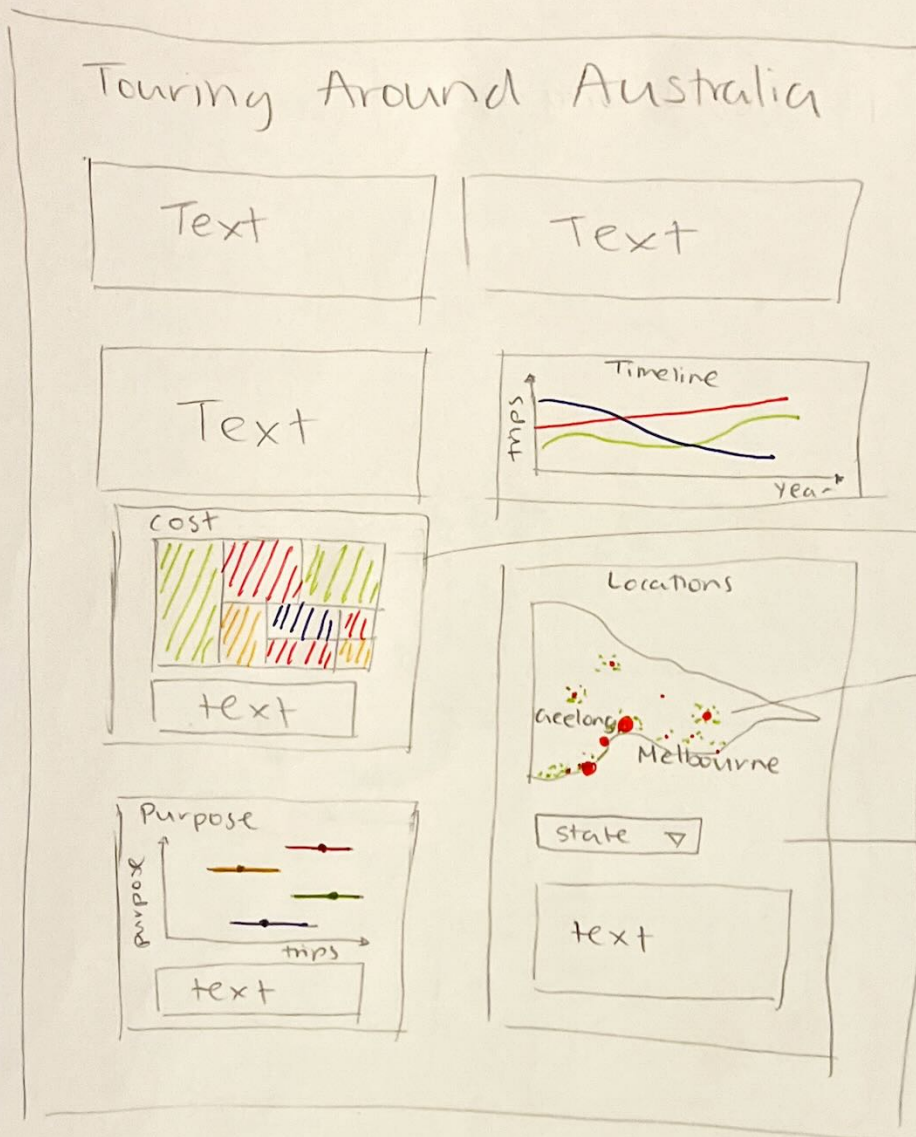 Touring Around Australia
Text
Text
Text
Timeline
trips
year
cost
text
Locations
Geelong
Melbourne
state
text
Purpose
purpose
trips
text